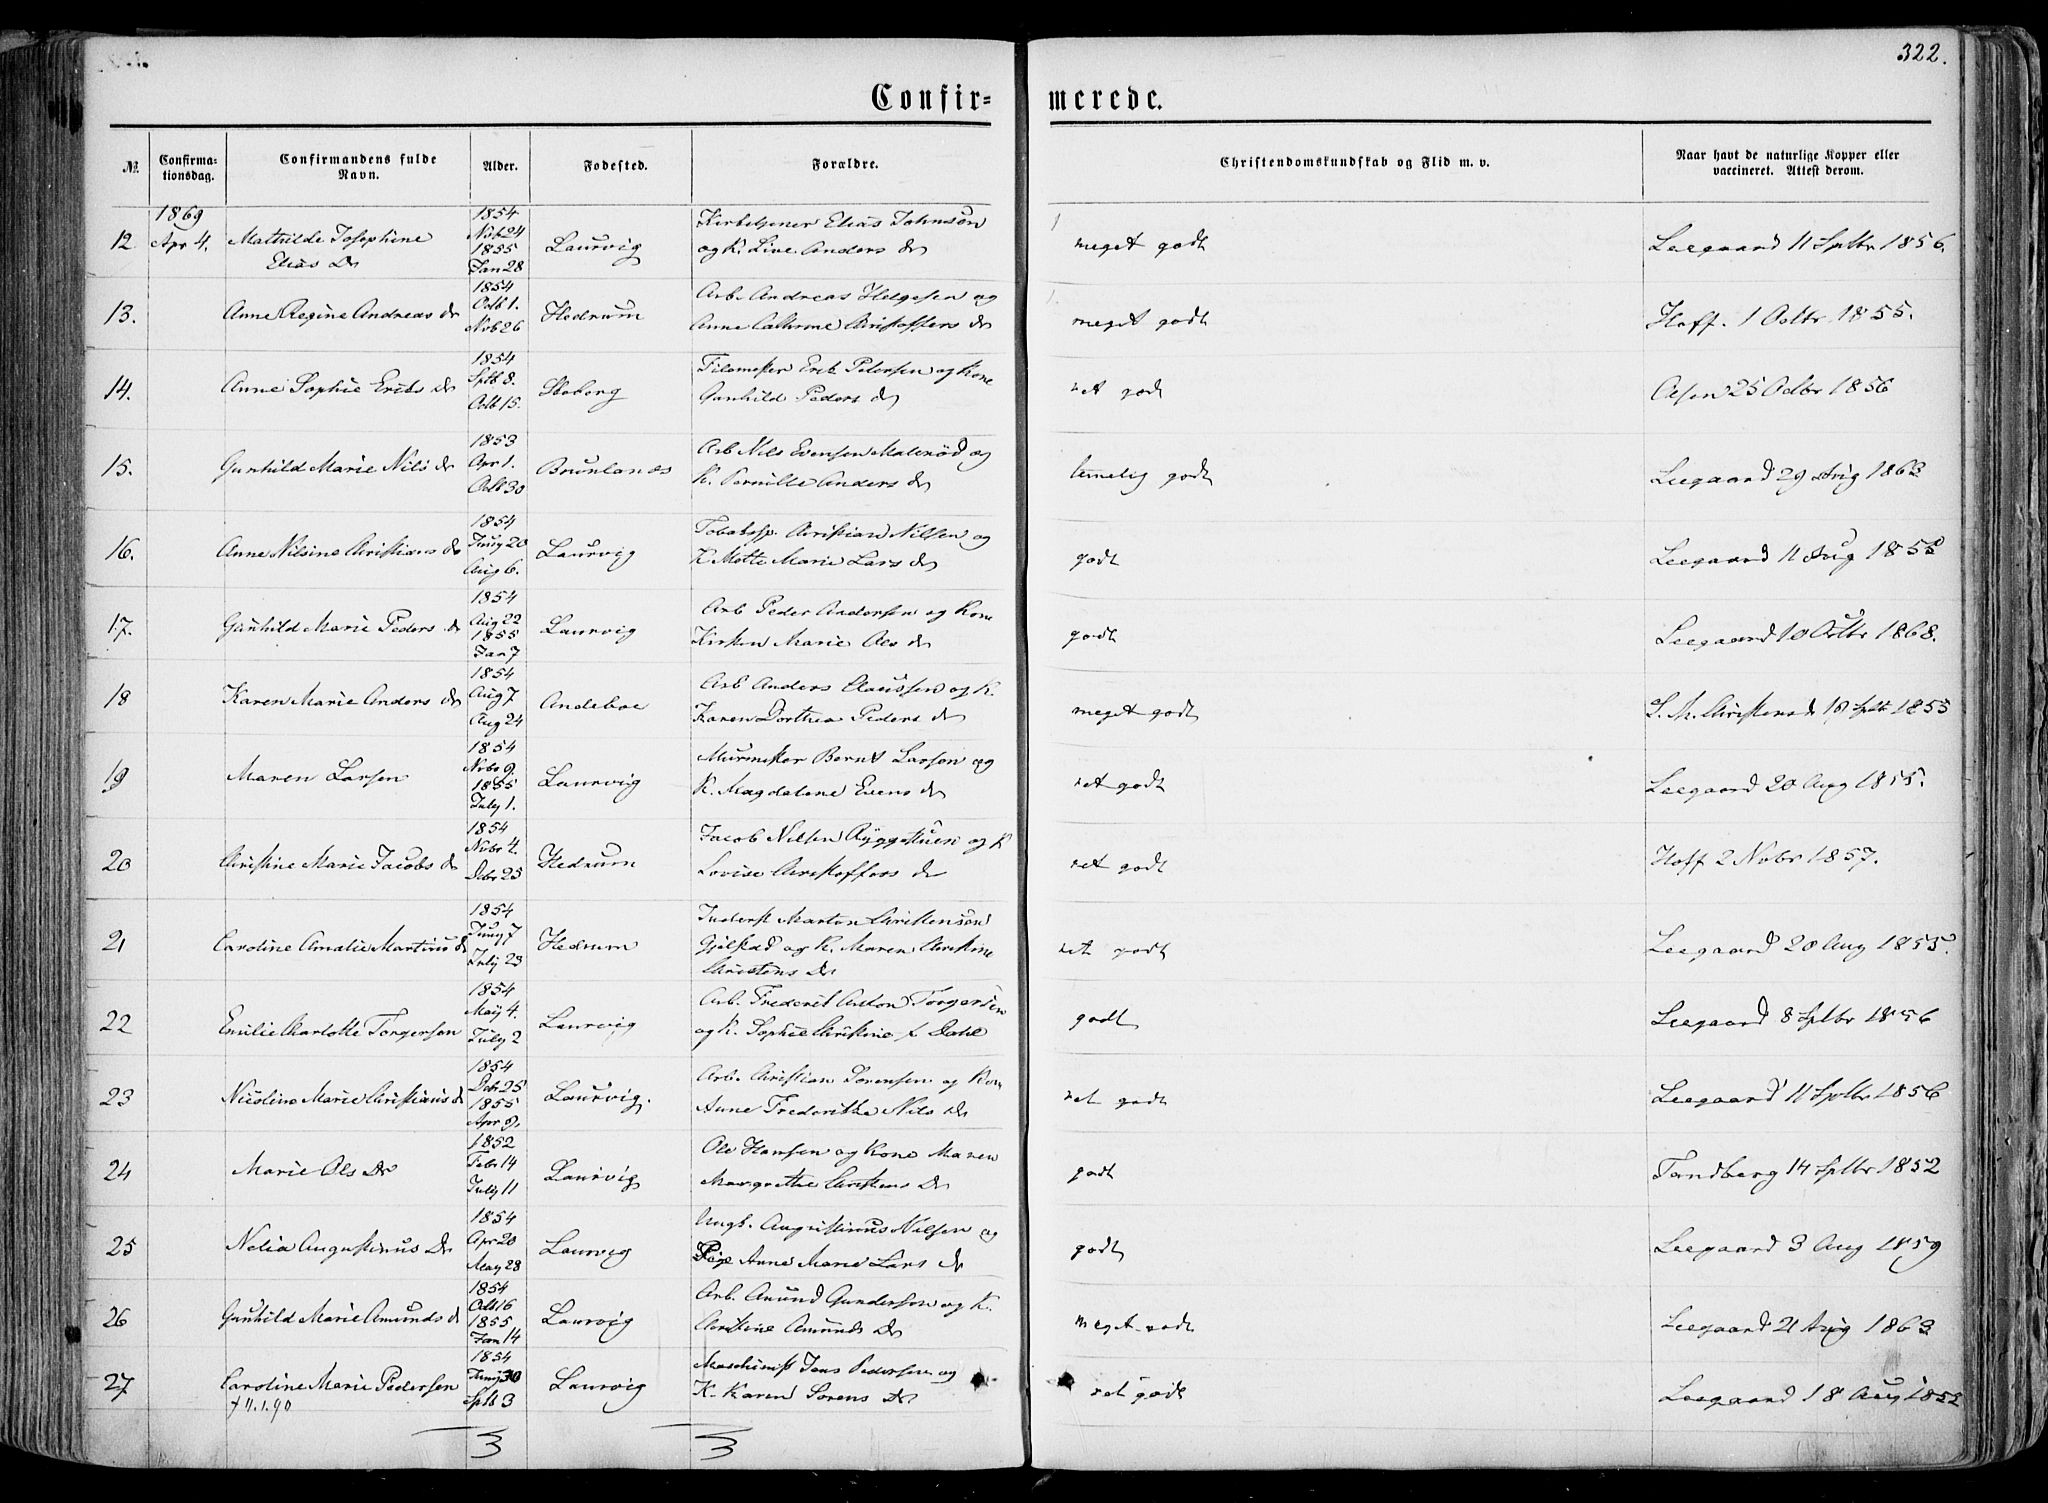 322.
Confir-
merede.
№
Confirma-
tionsdag.
Confirmandens fulde
Navn.
Alder.
Fødested.
Forældre.
Christendomskundskab og Flid m. v.
Naar havt de naturlige Kopper eller
vaccineret. Attest derom.
12 1869 Apr 4. Mathilde Josephine Elias Dr 1854 Nvb 24 1855 Jan 28 Laurvig Kirketjener Elias Johnson og K. Live Anders dr meget godt Leegaard 11 Sptbr 1856.
13. Anne Regine Andreas dr 1854 Octb 1. Nvb 26 Hedrum Arb. Andreas Helgesen og Anne Cathrine Christoffers dr meget godt Hoff. 1 Octbr 1855.
14. Anne Sophie Eriks dr 1854 Sptb 8. Octb 15. Skoborg Erik Pedersen og Kone Gunhild Peders dr ret godt Olsen 25 Octbr 1856
15. Gunhild Marie Nils dr 1853 Apr 1. Octb 30 Brunlanæs Arb Nils Evensen Malerød og K. Pernille Anders dr temelig godt Leegaard 29 Aug 1863
16. Anne Nilsine Christians dr 1854 Juny 20 Aug 6. Laurvig Tobaksp. Christian Nilsen og K. Mette Marie Lars dr godt Leegaard 11 Aug 1855
17. Gunhild Marie Peders dr 1854 Aug 22 1855 Jan 7 Laurvig Arb Peder Andersen og Kone Kirsten Marie Ols dr godt Leegaard 10 Octbr 1868.
18 Karen Marie Anders dr 1854 Aug 7 Aug 24 Andeboe Arb Anders Claussen og K. Karen Dorthea Peders dr meget godt S. M. Christensen 18 Sptb 1855
19 Maren Larsen 1854 Nvbr 9. 1855 July 1. Laurvig Murmester Bernt Larsen og K. Magdalene Evens dr ret godt Leegaard 20 Aug 1855.
20 Christine Marie Jacobs dr 1854 Nvbr 4. Debr 25 Hedrum Jacob Nilsen Ryggstuen og K Lovise Christoffers dr ret godt Hoff 2 Nvbr 1857.
21 Caroline Amalie Martins dr 1854 Juny 7 July 23 Hedrum Inderst Marton Christensen Gjelstad og K. Maren Christine Christens Dr ret godt Leegaard 20 Aug 1855.
22 Emilie Charlotte Torgersen 1854 May 4. July 2 Laurvig Arb. Frederik Anton Torgersen og K. Sophie Christine f Dahl godt Leegaard 8 Sptbr 1856
23 Nicoline Marie Christians d 1854 Debr 25 1855 Apr 9. Laurvig. Arb. Christian Sørensen og Kone Anne Frederikke Nils Dr ret godt Leegaard 11 Sptbr 1856
24 Marie Ols Dr 1852 Febr 14 July 11 Laurvig Ole Hansen og Kone Maren Margrethe Christens Dr godt Tandberg 14 Sptbr 1852
25 Nelia Augustinus Dr 1854 Apr 20 May 28 Laurvig Ungk. Augustinus Nilsen og Pige Anne Marie Lars dr godt Leegaard 3 Aug 1859
26 Gunhild Marie Amunds d 1854 Octb 16 1855 Jan 14 Laurvig Arb. Amund Gundersen og K. Christine Amunds Dr meget godt Leegaard 21 Aug 1863
27 Caroline Marie Pedersen † 11.1.90 1854 Juny 30 Sptb 3 Laurvig Maschinist Jens Pedersen og K. Karen Sørens Dr ret godt Leegaard 18 Aug 1852
3 3